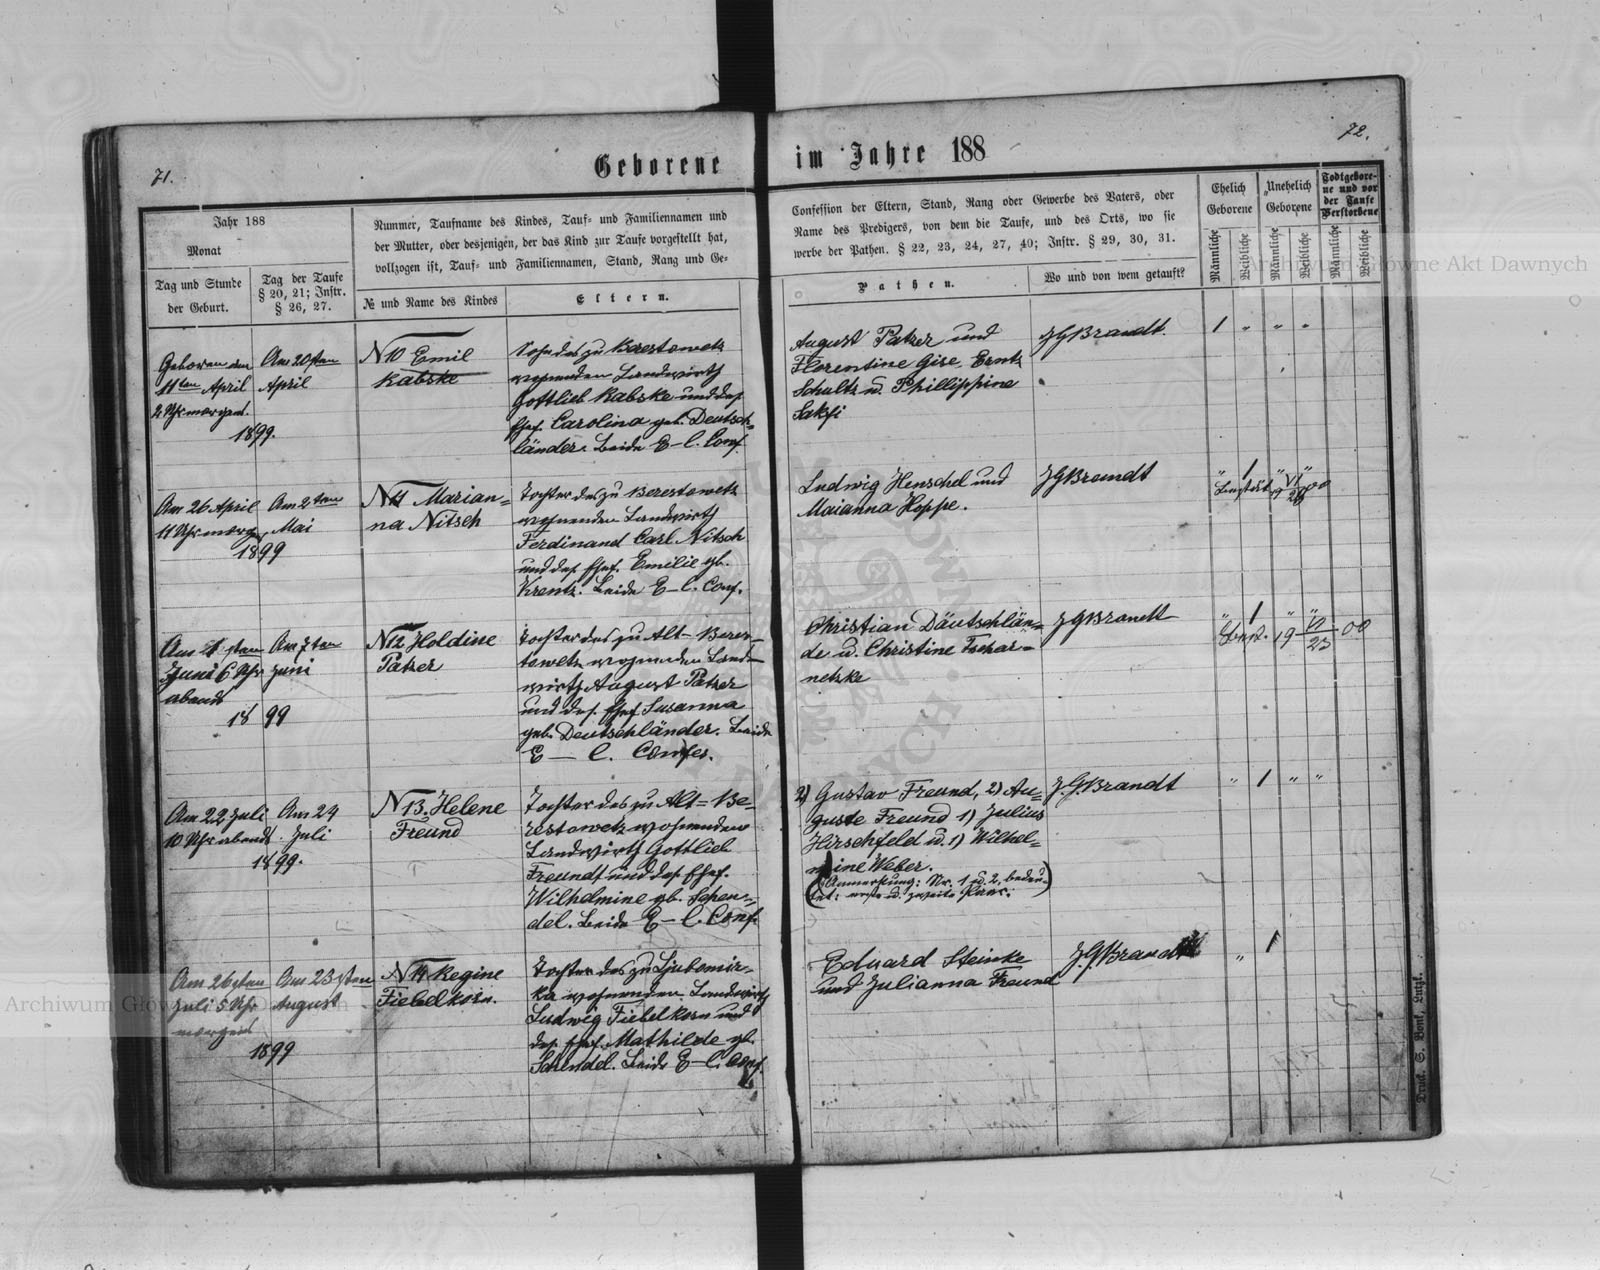 71.
72.
Geborene im Jahre 188
Jahr 188
Monat
Tag und Stunde
der Geburt.
Tag der Taufe
§ 20, 21; Instr.
§ 26, 27.
Nummer, Taufname des Kindes, Tauf- und Familiennamen und
der Mutter, oder desjenigen, der das Kind zur Taufe vorgestellt hat,
vollzogen ist, Tauf- und Familiennamen, Stand, Rang und Ge-
№ und Name des Kindes
Eltern.
Confession der Eltern, Stand, Rang oder Gewerbe des Vaters, oder
Name des Predigers, von dem die Taufe, und des Orts, wo sie
werbe der Pathen. § 22, 23, 24, 27, 40; Instr. § 29, 30, 31.
Pathen.
Wo und von wem getauft?
Ehelich
Geborene
Unehelich
Geborene
Todtgebore-
ne und vor
der Taufe
Verstorbene
Männliche
Weibliche
Männliche
Weibliche
Männliche
Weibliche
Geboren den
11ten April
2 Uhr morgens.
1899.
Am 20sten
April
N10 Emil
Kabske
Sohn des zu Berestowetz
wohnenden Landwirth
Gottlieb Kabske und des
Ehef. Carolina geb. Deutsch-
länder. Beide E-l. Conf.
August Patzer und
Florentine Gise, Erntz
Schultz u. Phillippine
Sakzi
JGBrandt.
1 " " "
Am 26 April
11 Uhr morgens
1899
Am 2ten
Mai
N11 Marian=
na Nitsch
Tochter des zu Berestowetz
wohnenden Landwirth
Ferdinand Carl Nitsch
und des Ehef. Emilie gb.
Krentz. Beide E-l. Conf.
Ludwig Henschel und
Maianna Hoppe.
JGBrandt
" 1 " "
Am 1sten
Juni 6 Uhr
abends
1899
Am 7ten
Juni
N12 Holdine
Patzer
Tochter des zu Alt-Beres-
towetz wohnenden Land-
wirth August Patzer
und des Ehef Susanna
geb. Deutschländer. Beide
E — l. Confes.
Christian Däutschlän=
de u. Christine Tschar=
netzke
JGBrandt
" 1 " "
Am 22 Juli
10 Uhr abends
1899.
Am 29
Juli
N13. Helene
Freund
Tochter des zu Alt=Be-
restowetz wohnenden
Landwirth Gottlieb
Freundt und des Ehef.
Wilhelmine gb. Schen=
del. Beide E-l. Conf.
2) Gustav Freund, 2) Au=
guste Freund 1) Julius
Hirschfeld u. 1) Wilhel=
mine Weber.
(Anmerkung: Nr. 1 u. 2. bedeu-
tet: erste u. zweite Paar.)
J.G.Brandt
" 1 " "
Am 26sten
Juli 5 Uhr
morgens
1899
Am 23sten
August
N14 Regine
Fiebelkorn.
Tochter des zu Ljubomir-
ka wohnenden Landwirth
Ludwig Fiebelkorn und
des Ehef. Mathilde gb.
Schendel. Beide E-l. Conf.
Eduard Steinke
und Julianna Freund
J.G.Brandt
" 1
Druck. S. Bonk, Lutzk.
Archiwum Główne Akt Dawnych
Archiwum Główne Akt Dawnych